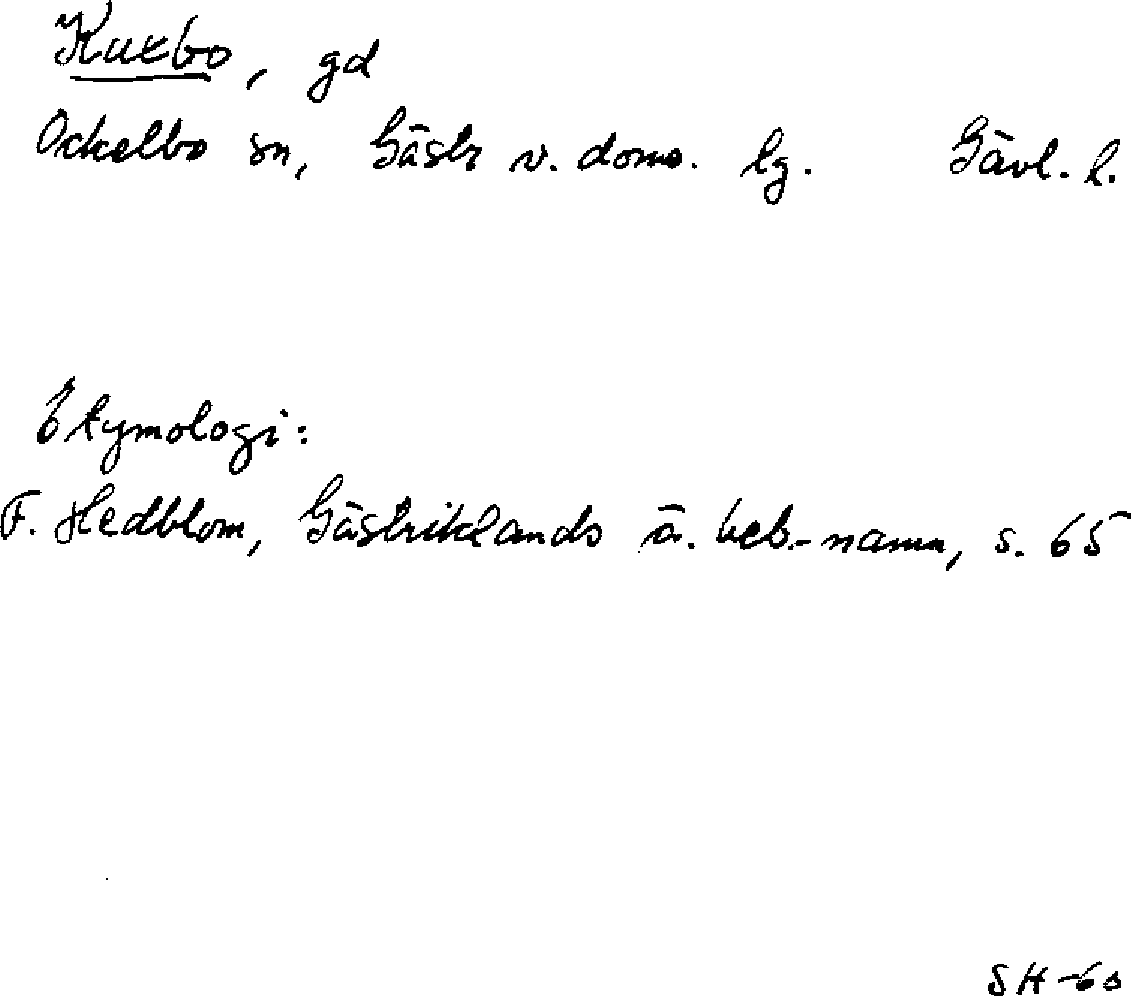 Kuxbo, gd
Ockelbo sn, Gästr v. doms. lg. Gävl. l.
Etymologi:
F. Hedblom, Gästriklands ä. beb.-namn, s. 65
SH-60